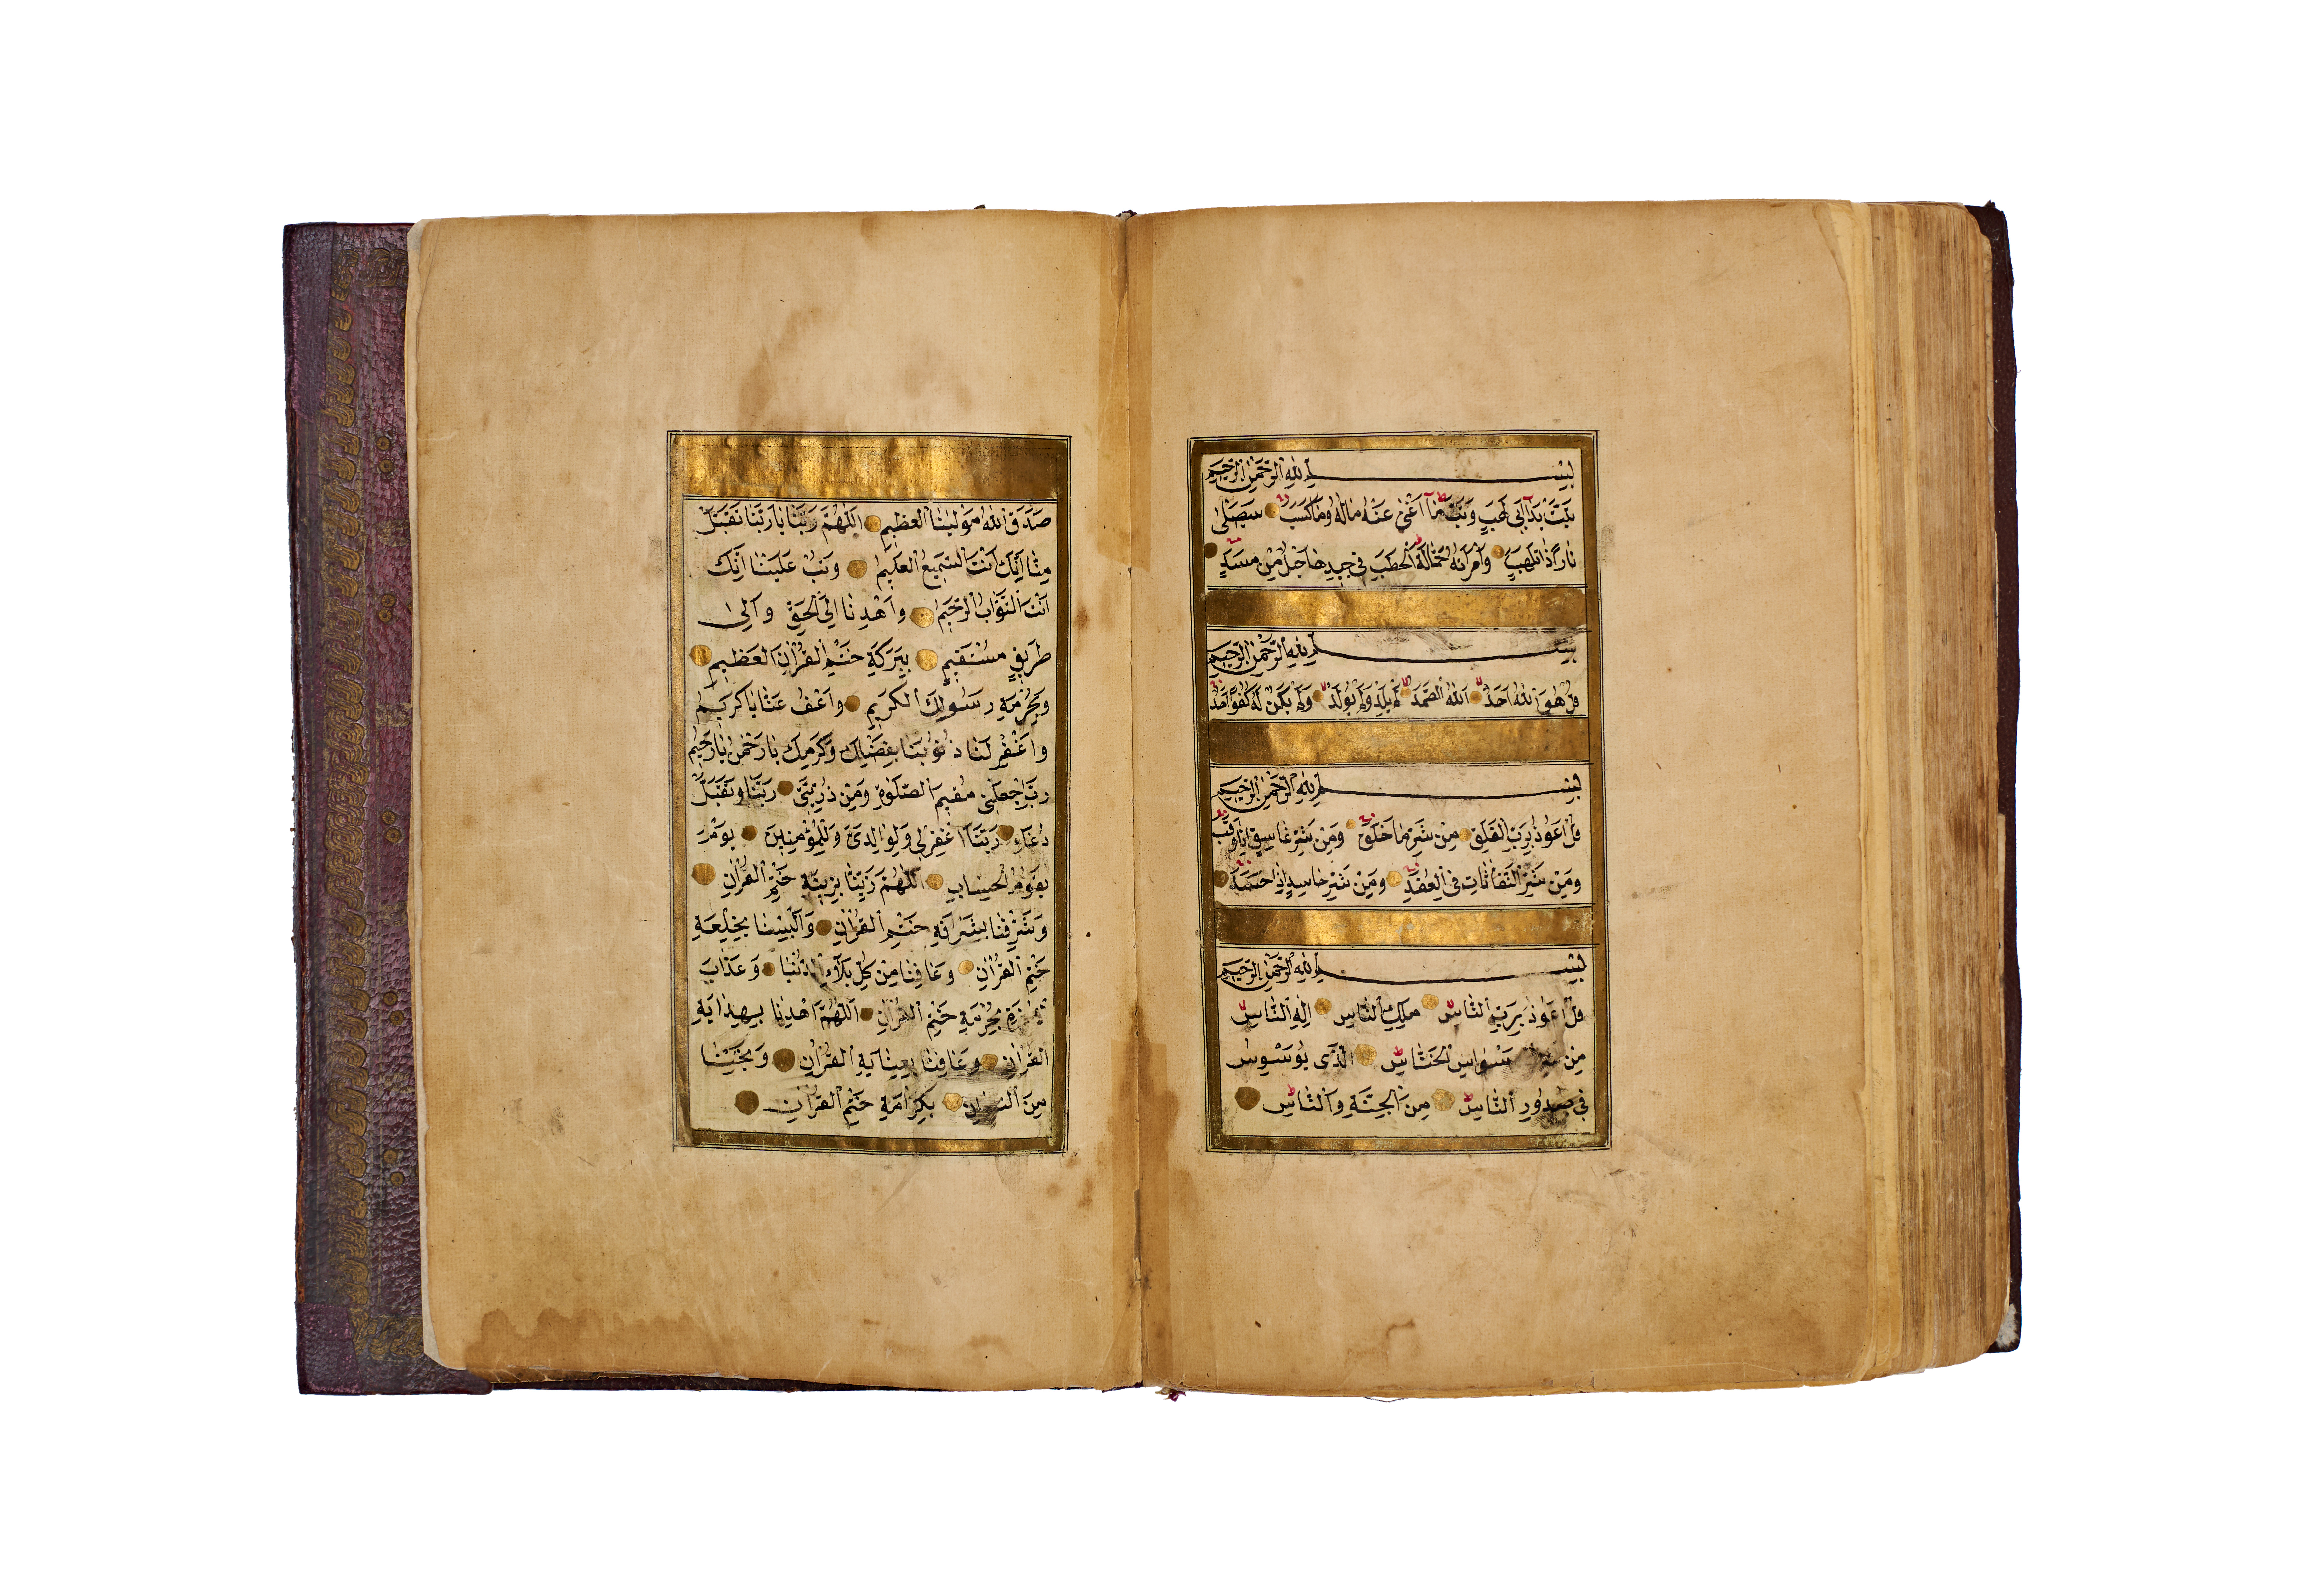 بِسْمِ اللهِ الرَّحْمٰنِ الرَّحِيمِ
تَبَّتْ يَدَآ اَبِى لَهَبٍ وَتَبَّ مَآ اَغْنٰى عَنْهُ مَالُهُ وَمَا كَسَبَ سَيَصْلٰى
نَارًا ذَاتَ لَهَبٍ وَامْرَاَتُهُ حَمَّالَةَ الْحَطَبِ فِى جِيدِهَا حَبْلٌ مِنْ مَسَدٍ
بِسْمِ اللهِ الرَّحْمٰنِ الرَّحِيمِ
قُلْ هُوَ اللهُ اَحَدٌ اَللهُ الصَّمَدُ لَمْ يَلِدْ وَلَمْ يُولَدْ وَلَمْ يَكُنْ لَهُ كُفُوًا اَحَدٌ
بِسْمِ اللهِ الرَّحْمٰنِ الرَّحِيمِ
قُلْ اَعُوذُ بِرَبِّ الْفَلَقِ مِنْ شَرِّ مَا خَلَقَ وَمِنْ شَرِّ غَاسِقٍ اِذَا وَقَبَ
وَمِنْ شَرِّ النَّفَّاثَاتِ فِى الْعُقَدِ وَمِنْ شَرِّ حَاسِدٍ اِذَا حَسَدَ
بِسْمِ اللهِ الرَّحْمٰنِ الرَّحِيمِ
قُلْ اَعُوذُ بِرَبِّ النَّاسِ مَلِكِ النَّاسِ اِلٰهِ النَّاسِ
مِنْ شَرِّ الْوَسْوَاسِ الْخَنَّاسِ الَّذِى يُوَسْوِسُ
فِى صُدُورِ النَّاسِ مِنَ الْجِنَّةِ وَالنَّاسِ
صَدَقَ اللهُ مَوْلٰينَا الْعَظِيمِ اَللّٰهُمَّ رَبَّنَا يَا رَبَّنَا تَقَبَّلْ
مِنَّا اِنَّكَ اَنْتَ السَّمِيعُ الْعَلِيمُ وَتُبْ عَلَيْنَا اِنَّكَ
اَنْتَ التَّوَّابُ الرَّحِيمُ وَاهْدِنَا اِلَى الْحَقِّ وَاِلٰى
طَرِيقٍ مُسْتَقِيمٍ بِبَرَكَةِ خَتْمِ الْقُرْاٰنِ الْعَظِيمِ
وَبِحُرْمَةِ رَسُولِكَ الْكَرِيمِ وَاعْفُ عَنَّا يَا كَرِيمُ
وَاغْفِرْ لَنَا ذُنُوبَنَا بِفَضْلِكَ وَكَرَمِكَ يَا رَحْمٰنُ يَا رَحِيمُ
رَبِّ اجْعَلْنِى مُقِيمَ الصَّلٰوةِ وَمِنْ ذُرِّيَّتِى رَبَّنَا وَتَقَبَّلْ
دُعَاءِ رَبَّنَا اغْفِرْلِى وَلِوَالِدَىَّ وَلِلْمُؤْمِنِينَ يَوْمَ
يَقُومُ الْحِسَابِ اَللّٰهُمَّ زَيِّنَّا بِزِينَةِ خَتْمِ الْقُرْاٰنِ
وَشَرِّفْنَا بِشَرَافَةِ خَتْمِ الْقُرْاٰنِ وَاَلْبِسْنَا بِخِلْعَةِ
خَتْمِ الْقُرْاٰنِ وَعَافِنَا مِنْ كُلِّ بَلَاءِ الدُّنْيَا وَعَذَابِ
الْاٰخِرَةِ بِحُرْمَةِ خَتْمِ الْقُرْاٰنِ اَللّٰهُمَّ اهْدِنَا بِهِدَايَةِ
الْقُرْاٰنِ وَعَافِنَا بِعِنَايَةِ الْقُرْاٰنِ وَنَجِّنَا
مِنَ النِّيرَانِ بِكَرَامَةِ خَتْمِ الْقُرْاٰنِ